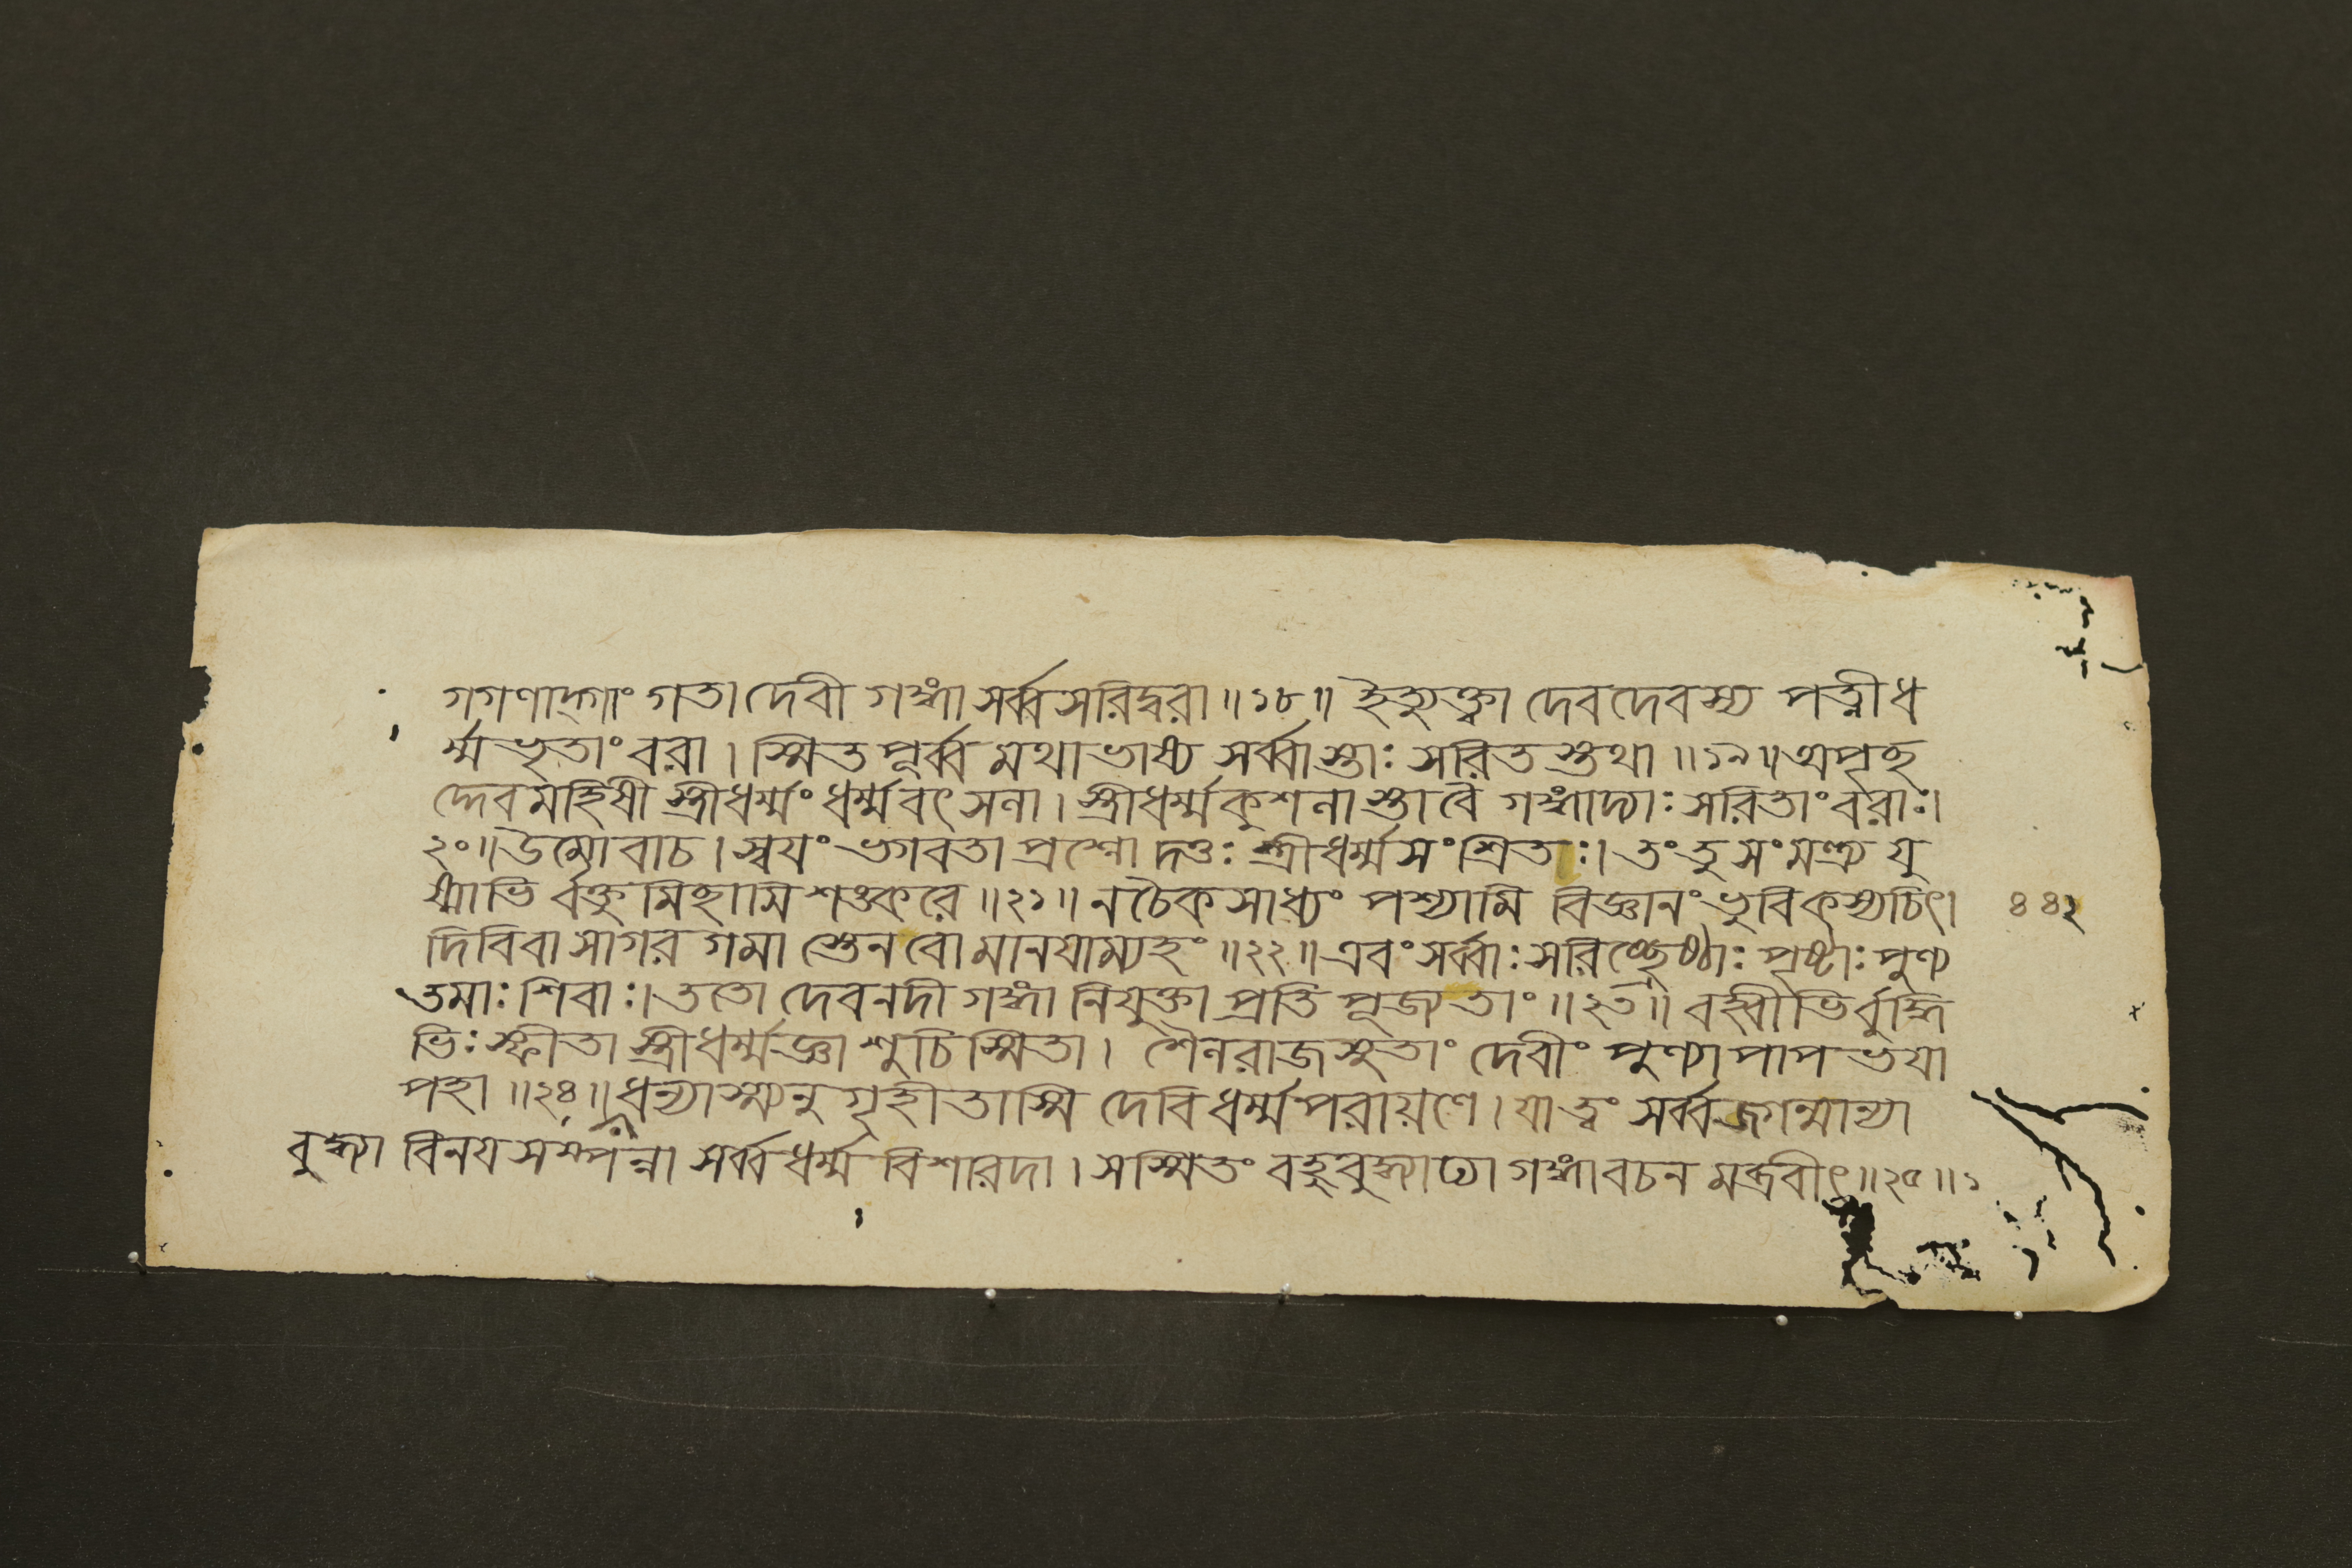 গগণাদ্গাং গতা দেবী গঙ্গা সর্ব্বসরিদ্বরা॥১৮॥ ইত্যুক্ত্বা দেবদেবস্য পত্নীধ
র্ম্মভৃতাং বরা। স্মিত পূর্ব্ব মথাভাষ্য সর্ব্বাস্তাঃ সরিত স্তথা॥১৯॥অপৃছ
দ্দেবমহিষী স্ত্রীধর্ম্মং ধর্ম্মবৎসলা। স্ত্রীধর্ম্মকুশলাস্তা বৈ গঙ্গাদ্যাঃ সরিতাং বরাঃ।
২০॥উমোবাচ। স্বযং ভগবতা প্রশ্নো দত্তঃ স্ত্রীধর্ম্মসংশ্রিতঃ। তং তু সংমন্ত্র্য যু
ষ্মাভি র্বক্তুমিছামি শঙ্করে॥২১॥ ন চৈকসাধ্যং পশ্যামি বিজ্ঞানং ভুবিকস্যচিৎ।
৪৪২
দিবি বা সাগর গমা স্তেন বো মানযাম্যহং॥২২॥এবং সর্ব্বাঃ সরিচ্ছ্রেষ্ঠাঃ পৃষ্টাঃ পুণ্য
তমাঃ শিবাঃ। ততো দেবনদী গঙ্গা নিযুক্তা প্রতি পূজ্য তাং॥২৩॥ বহ্বীভির্বুদ্ধি
ভিঃ স্ফীতা স্ত্রীধর্ম্মজ্ঞা শুচিস্মিতা। শৈলরাজসুতাং দেবীং পুণ্যা পাপ ভযা
পহা॥২৪॥ধন্যাস্ম্যনুগৃহীতাস্মি দেবি ধর্ম্মপরায়ণে। যা ত্বং সর্ব্বজগন্মান্যা
বুদ্ধ্যা বিনযসম্পন্না সর্ব্বধর্ম্ম বিশারদা। সস্মিতং বহুবুদ্ধ্যাঢ্যা গঙ্গা বচন মব্রবীৎ॥২৫॥১